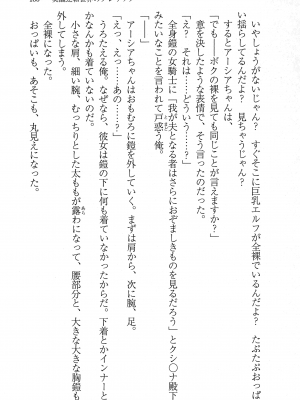 いやしょうがないじゃん？　すぐそこに巨乳エルフが全裸でいるんだよ？　たぷたぷおっぱ
揺らしてるんだよ？　見ちゃうじゃん？
するとアーシアちゃんは、
「でも――ボクの裸を見ても同じことが言えますか？」
意を決したような表情で、そう言ったのだった。
「え？　それは……どういう……？」
全身鎧の女騎士に「我が夫となる者はさらにおぞましきものを見るだろう」とクシ〇ナ殿下
みたいなことを言われて戸惑う俺。
「――」
アーシアちゃんはおもむろに鎧を外していく。まずは肩から、次に腕、足。
「えっ、えっ……あの……？」
うろたえる俺。なぜなら、彼女は鎧の下に何も着ていなかったからだ。下着とかインナーと
かなんかも着ていないのだ。
小さな肩、細い腕、むっちりとした太ももが露わになって、腰部分と、大きな大きな胸鎧も
外してしまう。
おっぱいも、あそこも、丸見えになった。